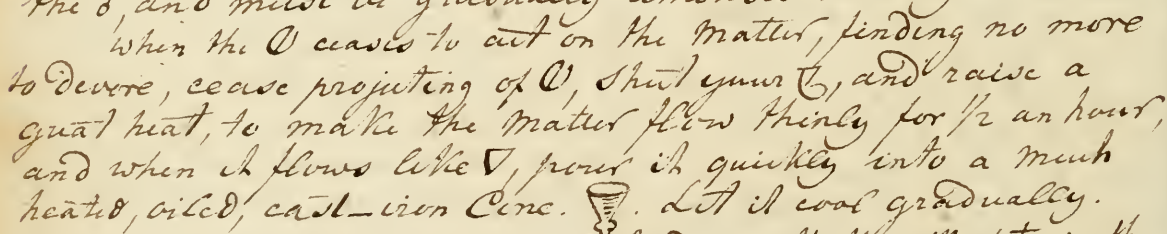 the , and must be gradually
when the 🜕 ceases to act on the Matter, finding no more
to Devore, cease projecting of 🜕, Shut your , and raise a
great heat, to make the Matter flow thinly for 1/2 an hour,
and when it flows like 🜄, pour it quickly into a much
heated, oiled, cast-iron Cone. . Let it cool gradually.